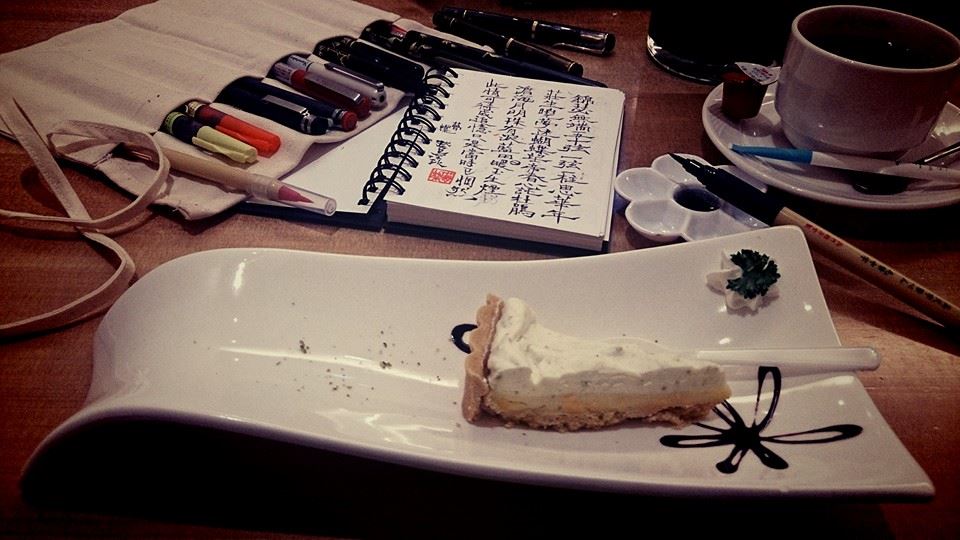 錦瑟無端五十弦一弦一柱思華年
莊生曉夢迷蝴蝶望帝春心託杜鵑
滄海月明珠有淚藍田日暖玉生煙
此情可待成追憶只是當時已惘然